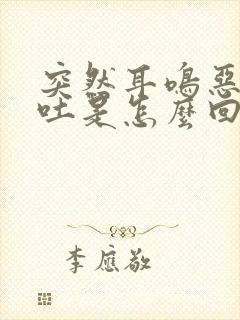 突然耳鳴惡
吐是怎麼回
李應敬